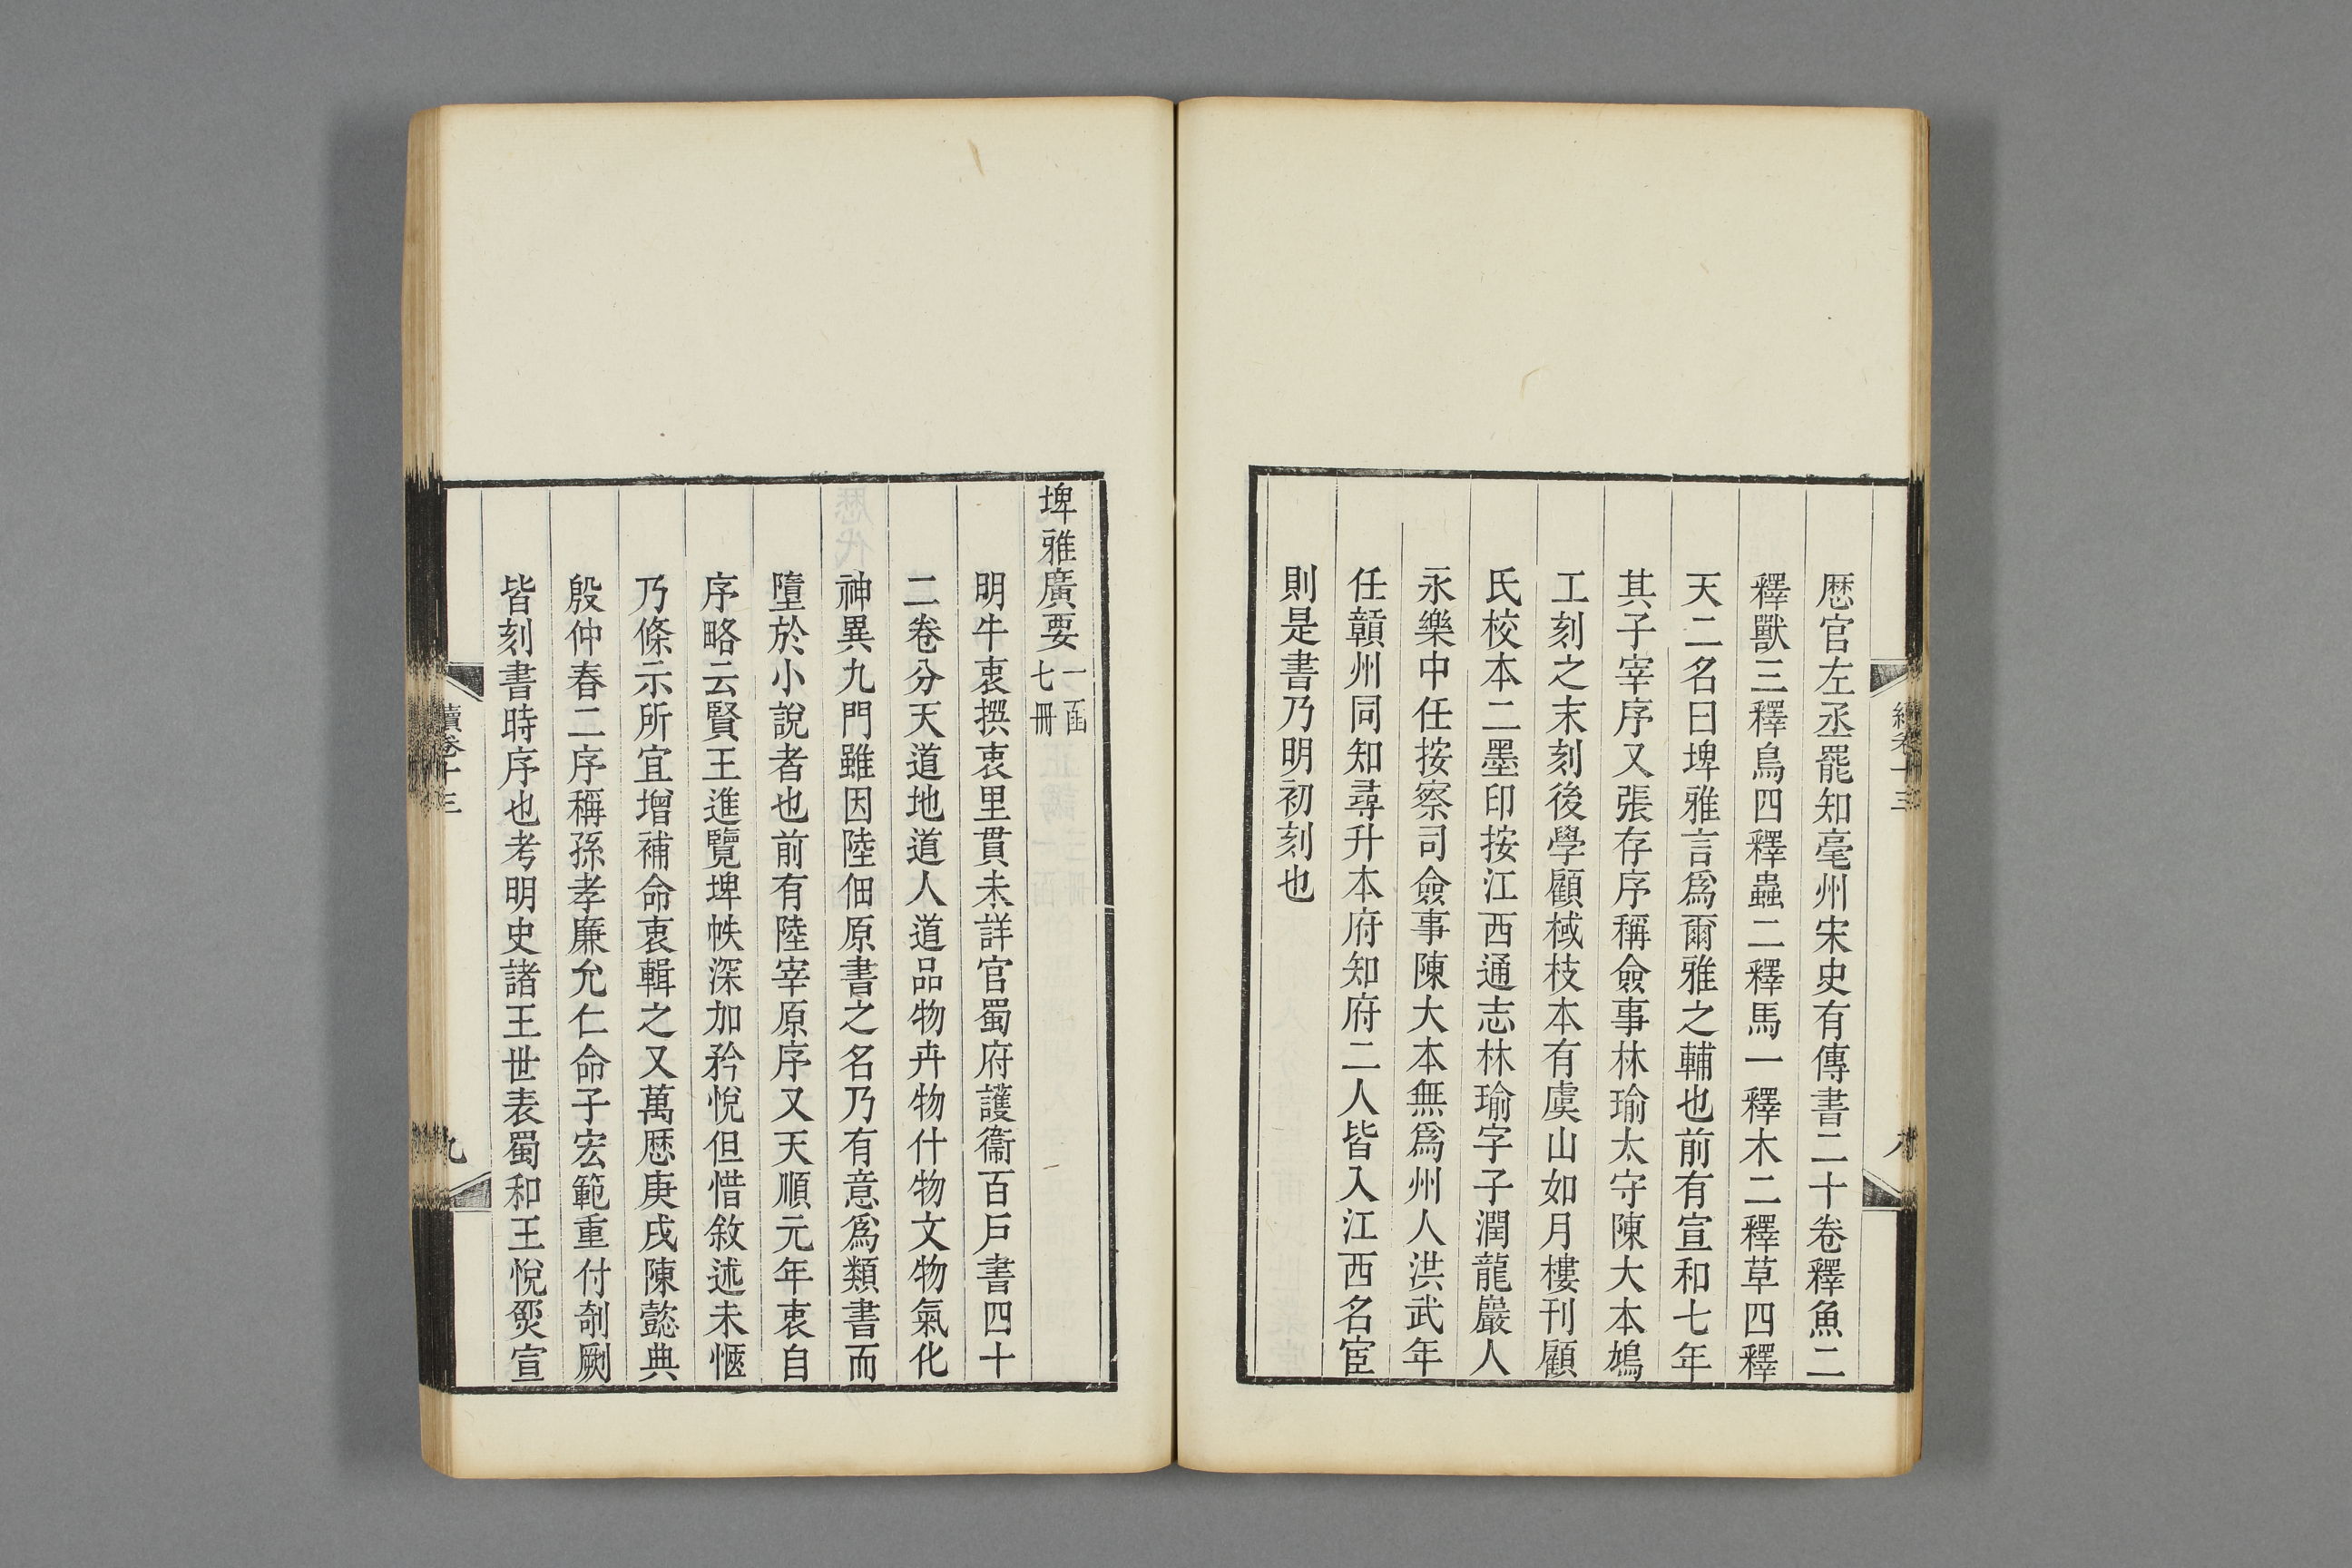 歷官左丞罷知亳州宋史有傳書二十卷釋魚二
釋獸三釋鳥四釋蟲二釋馬一釋木二釋草四釋
天二名曰埤雅言爲爾雅之輔也前有宣和七年
其子宰序又張存序稱僉事林瑜太守陳大本鳩
工刻之末刻後學顧棫枝本有虞山如月樓刊顧
氏校本二墨印按江西通志林瑜字子潤龍巖人
永樂中任按察司僉事陳大本無爲州人洪武年
任贛州同知尋升本府知府二人皆入江西名宦
則是書乃明初刻也
續卷十三
八
埤雅廣要
一函
七冊
明牛衷撰衷里貫未詳官蜀府護衞百戶書四十
二卷分天道地道人道品物卉物什物文物氣化
神異九門雖因陸佃原書之名乃有意爲類書而
墮於小說者也前有陸宰原序又天順元年衷自
序略云賢王進覽埤帙深加矜悅但惜敘述未愜
乃條示所宜增補命衷輯之又萬歷庚戌陳懿典
殷仲春二序稱孫孝廉允仁命子宏範重付剞劂
皆刻書時序也考明史諸王世表蜀和王悅𤐤宣
續卷十三
九